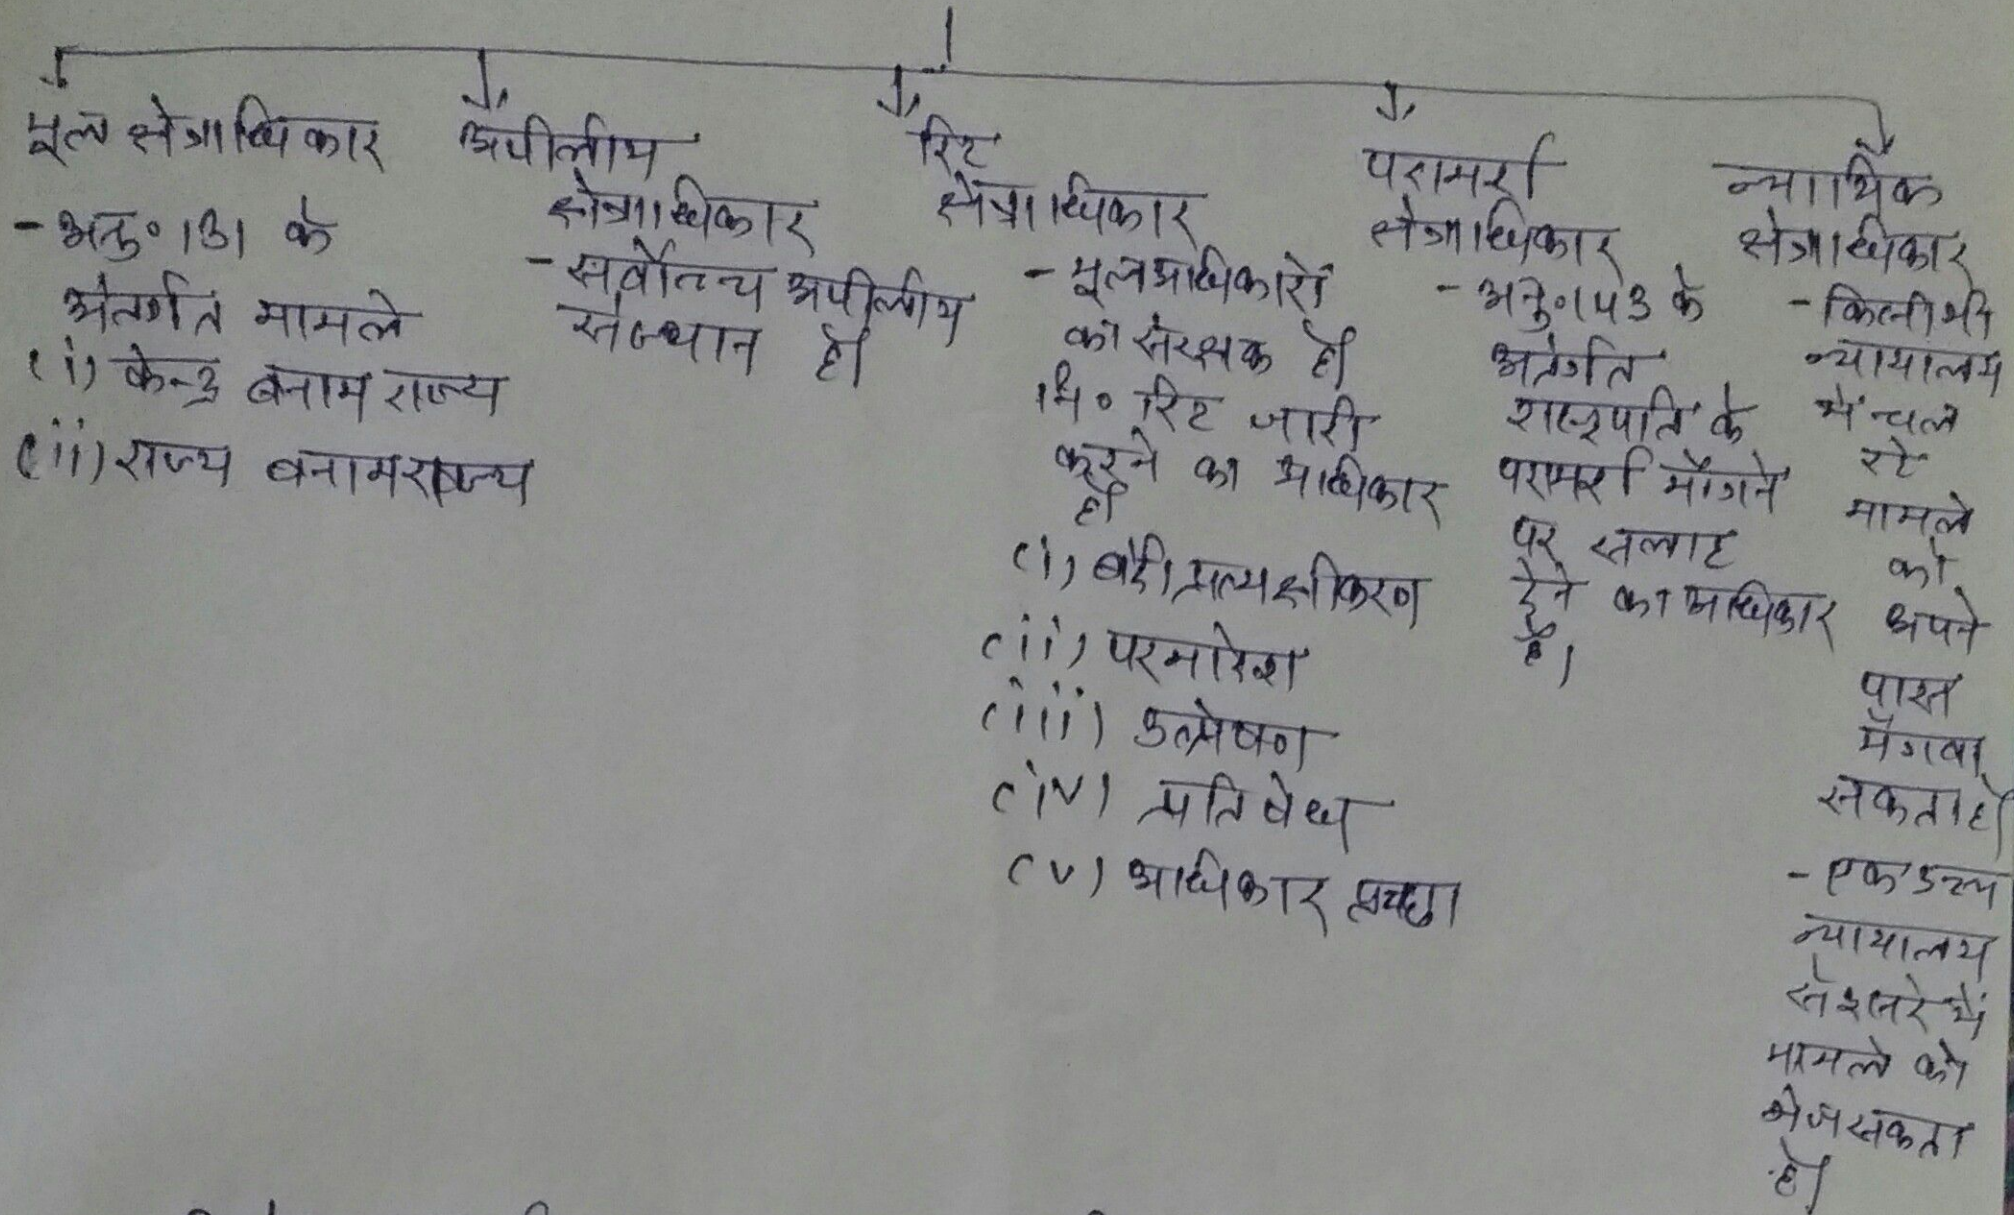 मूल क्षेत्राधिकार
- अनु० 131 के
अंतर्गत मामले
(i) केन्द्र बनाम राज्य
(ii) राज्य बनाम राज्य
अपीलीय
क्षेत्राधिकार
- सर्वोच्च अपीलीय
संस्थान है।
रिट
क्षेत्राधिकार
- मूल अधिकारों
का संरक्षक है।
रिट जारी
करने का अधिकार
है।
(i) बंदी प्रत्यक्षीकरण
(ii) परमादेश
(iii) उत्प्रेषण
(iv) प्रतिषेध
(v) अधिकार पृच्छा
परामर्श
क्षेत्राधिकार
- अनु० 143 के
अंतर्गत
राष्ट्रपति के
परामर्श माँगने
पर सलाह
देने का अधिकार
है।
न्यायिक
क्षेत्राधिकार
- किसी भी
न्यायालय
में चल
रहे
मामले
को
अपने
पास
मँगवा
सकता है।
- एक उच्च
न्यायालय
से दूसरे में
मामले को
भेज सकता
है।